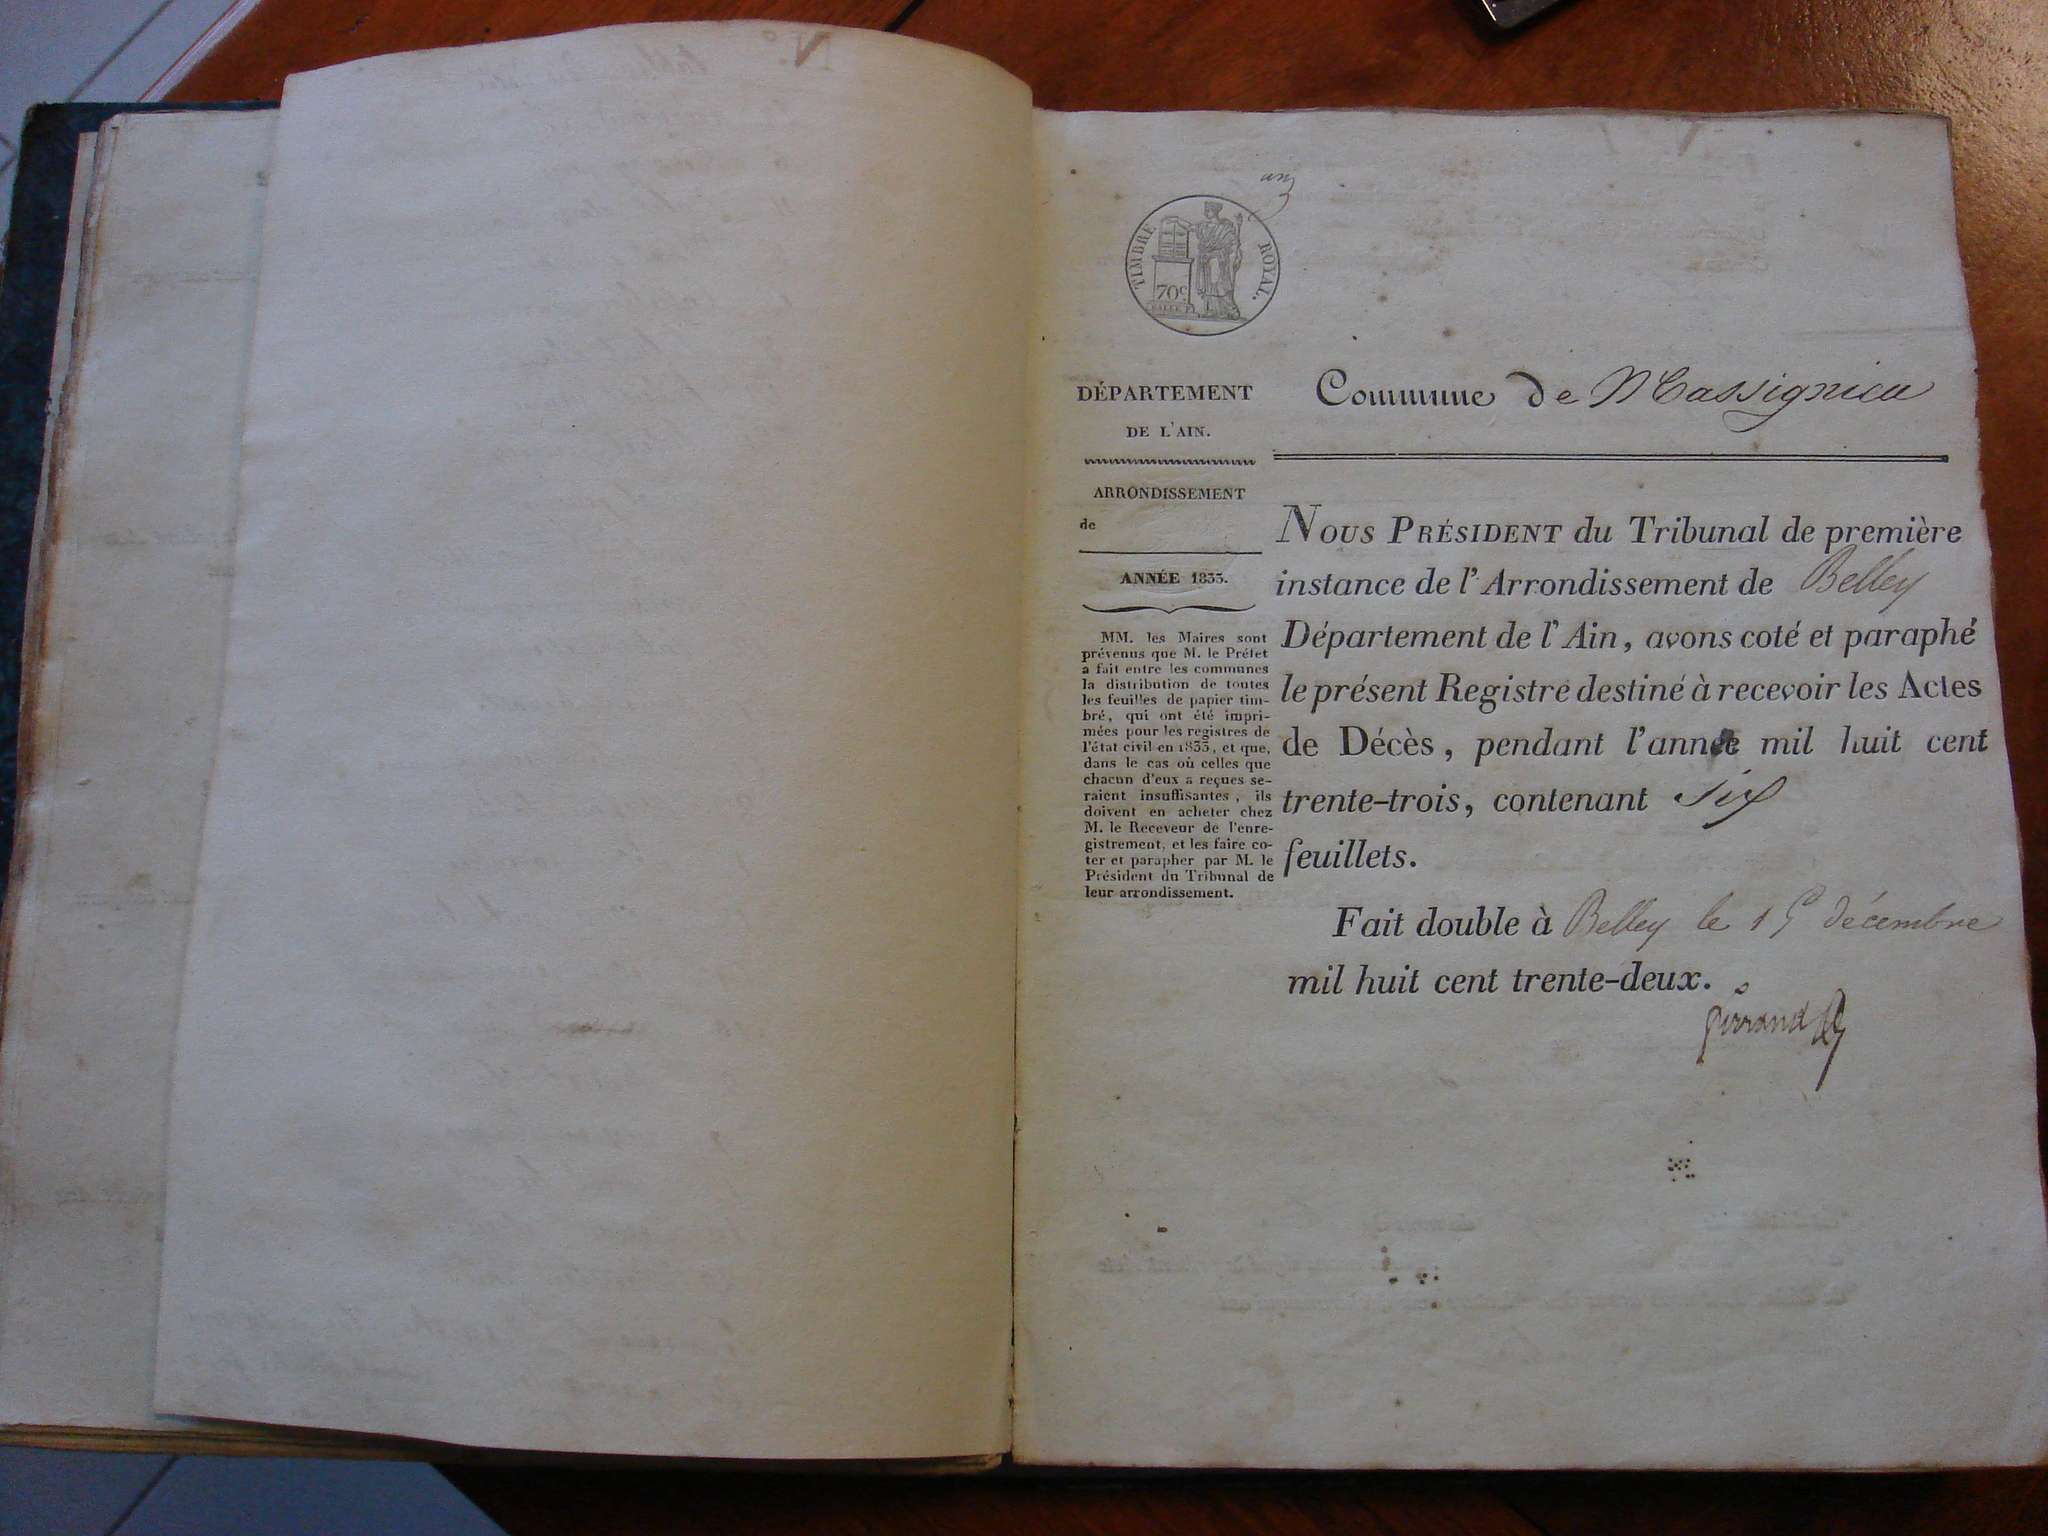 un
TIMBRE ROYAL.
70c
DÉPARTEMENT
DE L'AIN.
ARRONDISSEMENT
de
ANNÉE 1833.
MM. les Maires sont
prévenus que M. le Préfet
a fait entre les communes
la distribution de toutes
les feuilles de papier tim-
bré, qui ont été impri-
mées pour les registres de
l'état civil en 1833, et que,
dans le cas où celles que
chacun d'eux a reçues se-
raient insuffisantes, ils
doivent en acheter chez
M. le Receveur de l'enre-
gistrement, et les faire co-
ter et parapher par M. le
Président du Tribunal de
leur arrondissement.
Commune de Massignieu
NOUS PRÉSIDENT du Tribunal de première
instance de l'Arrondissement de Belley
Département de l'Ain, avons coté et paraphé
le présent Registre destiné à recevoir les Actes
de Décès, pendant l'année mil huit cent
trente-trois, contenant six
feuillets.
Fait double à Belley le 15 décembre
mil huit cent trente-deux.